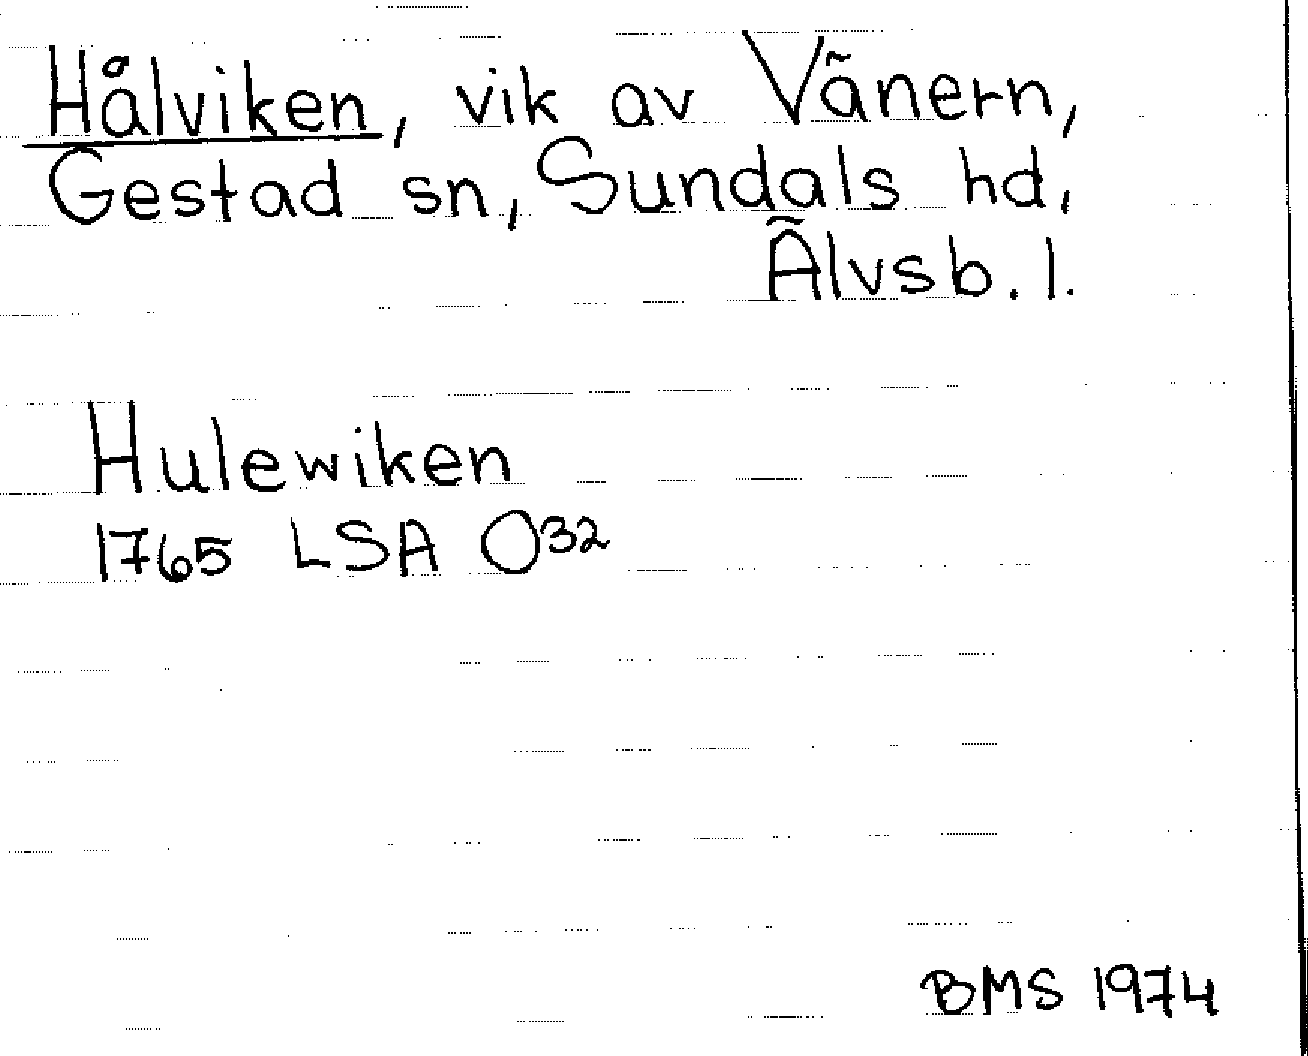 Hålviken, vik av Vänern,
Gestad sn, Sundals hd,
Älvsb. l.
Hulewiken
1765 LSA O32
BMS 1974